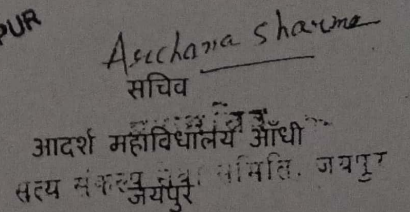 PUR
Archana Sharma
सचिव
आदर्श महाविधालय आँधी
जयपुर
सत्य संकल्प सेवा समिति, जयपुर